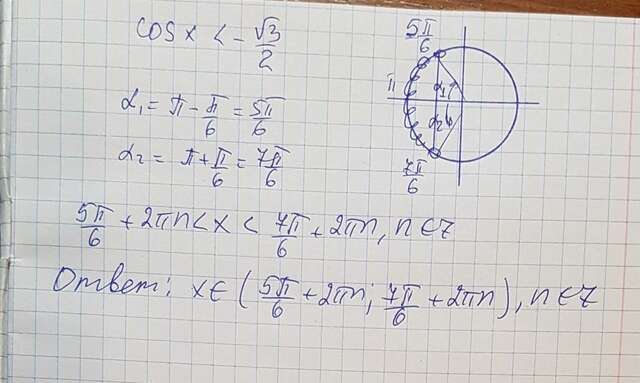 cos x < -√3/2
α₁ = π - π/6 = 5π/6
α₂ = π + π/6 = 7π/6
5π/6
π
α₁
α₂
7π/6
5π/6 + 2πn < x < 7π/6 + 2πn, n ∈ Z
Ответ: x ∈ (5π/6 + 2πn; 7π/6 + 2πn), n ∈ Z